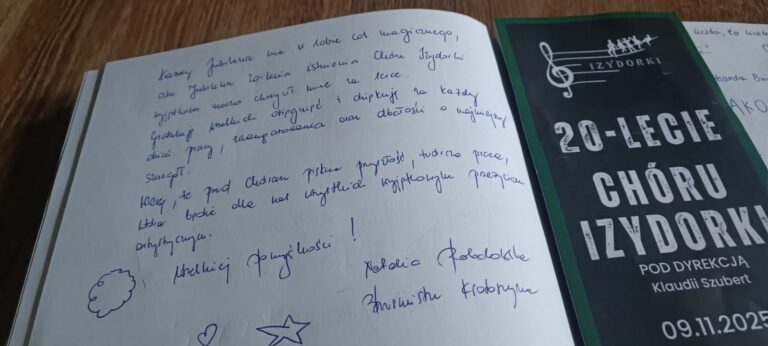 Każdy Jubileusz ma w sobie coś magicznego,
ale Jubileusz 20-lecia istnienia Chóru Izydorki
wyjątkowo mocno chwycił mnie za serce.
Gratuluję wielkich osiągnięć i dziękuję za każdy
dzień pracy, zaangażowania oraz dbałości o najmniejszy
szczegół.
Wierzę, że przed Chórem piękna przyszłość, twórcza praca,
która będzie dla nas wszystkich wyjątkowym przeżyciem
artystycznym.
Wielkiej pomyślności!
Natalia
Burmistrz Krotoszyna
IZYDORKI
20-LECIE
CHÓRU
IZYDORKI
POD DYREKCJĄ
Klaudii Szubert
09.11.2025